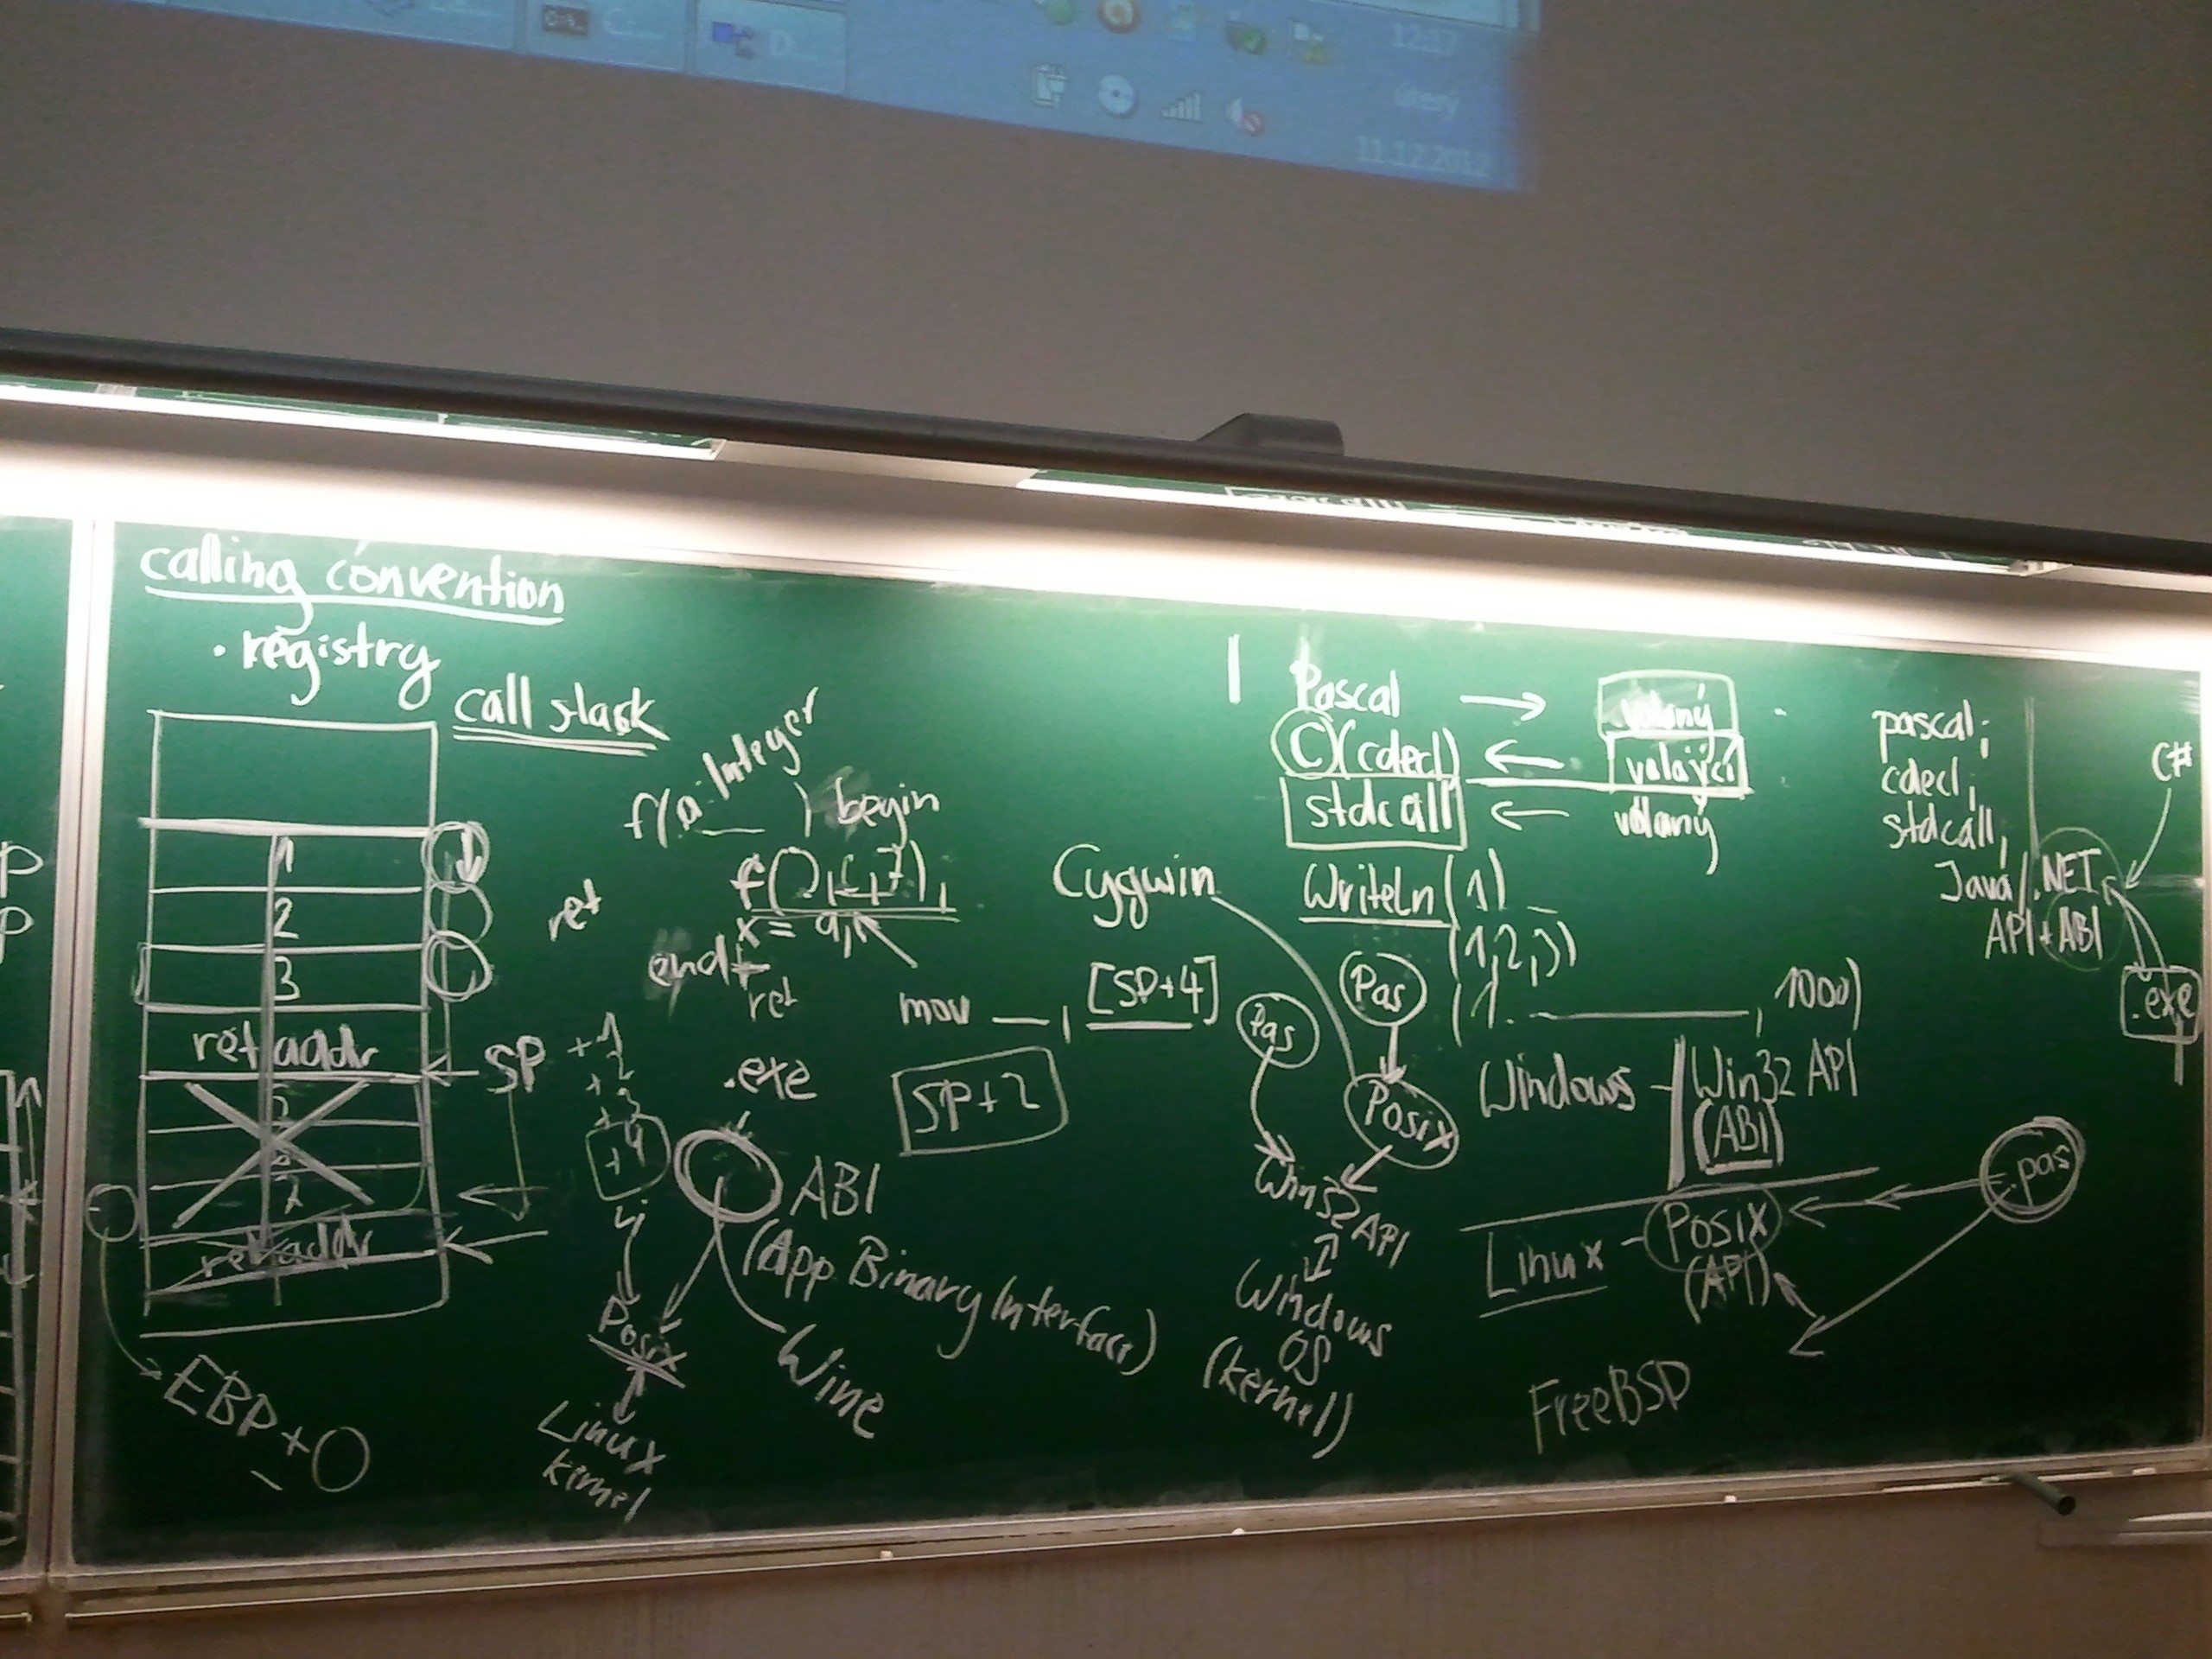 C...
D...
12:17
úterý
11.12.2012
calling convention
· registry
call stack
1
2
3
ret addr
SP
+1
+2
+3
+4
7
ret addr
EBP + 0
-
f(a: Integer) begin
x = a;
end
ret
ret
mov __, [SP+4]
SP+2
.exe
ABI
(App Binary Interface)
Posix
Linux
kernel
Wine
Pascal → volaný
C (cdecl) ← volající
stdcall ← volaný
Writeln (1)
(1,2,3)
(1. ______, 1000)
Cygwin
Pas
Pas
Posix
Win32 API
Windows
OS
(kernel)
Windows - Win32 API
(ABI)
Linux - Posix
(API)
.pas
FreeBSD
pascal;
cdecl;
stdcall;
Java/.NET
API + ABI
C#
.exe